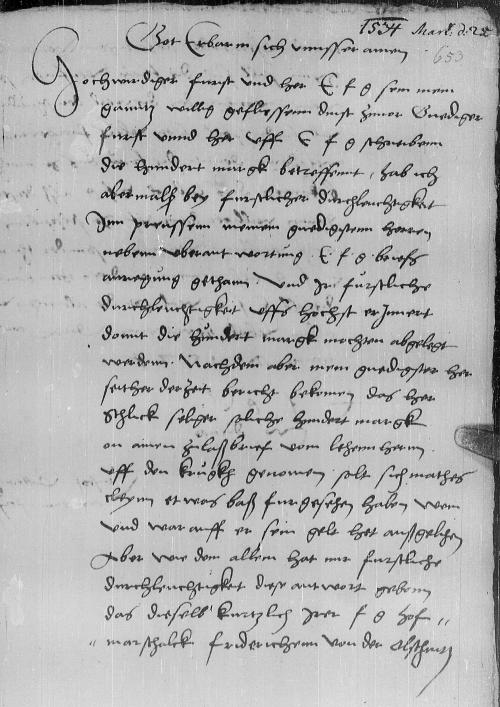 1534 Mart. d. 22
653
Got Erbarm sich vnnsser amen
Hochwirdiger furst und her E f g sein mein
ganntz willig gefliessenn dinst zuuor Gnediger
furst vnnd her vff E f g schreibenn
die hundert margk betreffennt, hab ich
abermalß bey furstlicher durchleuchtigkeit
Inn preussenn meinem gnedigstenn herren
nebenn vberantwortung E f g brieffs
anregung gethann. Vnd Ir furstliche
durchleuchtigkeit vffs hochst erInnert
domit die hundert margk mochten abgelegt
werdenn. Nachdem aber mein gnedigster her
seither der Zeit bericht bekomen das her
Schlick selger soliche hundert margk
on ainen Zulaßbrief vom lehennherrn
vff den krugkh genomen solt sich mathes
cleyn etwas baß furgesehen haben wem
vnd warauff er sein gelt het außgelihen
Aber wie dem allem hat mir furstliche
durchleuchtigkeit diese antwort gebenn
das dieselb kurtzlich Irer f g hof
marschalck friderichenn von der Olschnitz